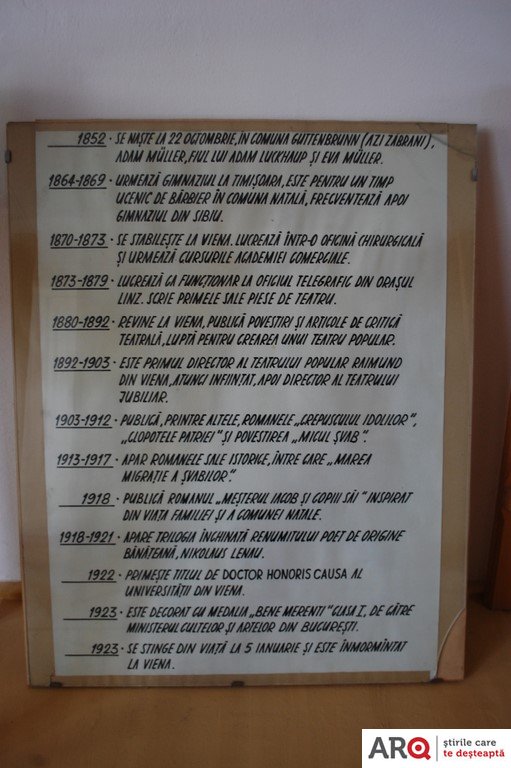 1852 · SE NAȘTE LA 22 OCTOMBRIE, ÎN COMUNA GUTTENBRUNN (AZI ZĂBRANI),
ADAM MÜLLER, FIUL LUI ADAM LUCKHAUP ȘI EVA MÜLLER.
1864-1869 · URMEAZĂ GIMNAZIUL LA TIMIȘOARA, ESTE PENTRU UN TIMP
UCENIC DE BĂRBIER ÎN COMUNA NATALĂ, FRECVENTEAZĂ APOI
GIMNAZIUL DIN SIBIU.
1870-1873 · SE STABILEȘTE LA VIENA. LUCREAZĂ ÎNTR-O OFICINĂ CHIRURGICALĂ
ȘI URMEAZĂ CURSURILE ACADEMIEI COMERCIALE.
1873-1879 · LUCREAZĂ CA FUNCȚIONAR LA OFICIUL TELEGRAFIC DIN ORAȘUL
LINZ. SCRIE PRIMELE SALE PIESE DE TEATRU.
1880-1892 · REVINE LA VIENA, PUBLICĂ POVESTIRI ȘI ARTICOLE DE CRITICĂ
TEATRALĂ, LUPTĂ PENTRU CREAREA UNUI TEATRU POPULAR.
1892-1903 · ESTE PRIMUL DIRECTOR AL TEATRULUI POPULAR RAIMUND
DIN VIENA, ATUNCI ÎNFIINȚAT, APOI DIRECTOR AL TEATRULUI
JUBILIAR.
1903-1912 · PUBLICĂ, PRINTRE ALTELE, ROMANELE „CREPUSCULUL IDOLILOR",
„CLOPOTELE PATRIEI" ȘI POVESTIREA „MICUL ȘVAB".
1913-1917 · APAR ROMANELE SALE ISTORICE, ÎNTRE CARE „MAREA
MIGRAȚIE A ȘVABILOR".
1918 · PUBLICĂ ROMANUL „MEȘTERUL IACOB ȘI COPIII SĂI" INSPIRAT
DIN VIAȚA FAMILIEI ȘI A COMUNEI NATALE.
1918-1921 · APARE TRILOGIA ÎNCHINATĂ RENUMITULUI POET DE ORIGINE
BĂNĂȚEANĂ, NIKOLAUS LENAU.
1922 · PRIMEȘTE TITLUL DE DOCTOR HONORIS CAUSA AL
UNIVERSITĂȚII DIN VIENA.
1923 · ESTE DECORAT CU MEDALIA „BENE MERENTI" CLASA I, DE CĂTRE
MINISTERUL CULTELOR ȘI ARTELOR DIN BUCUREȘTI.
1923 · SE STINGE DIN VIAȚĂ LA 5 IANUARIE ȘI ESTE ÎNMORMÎNTAT
LA VIENA.
ARQ știrile care
te deșteaptă